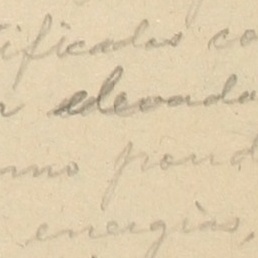 tificadas co
elevada
mo pond
energias,